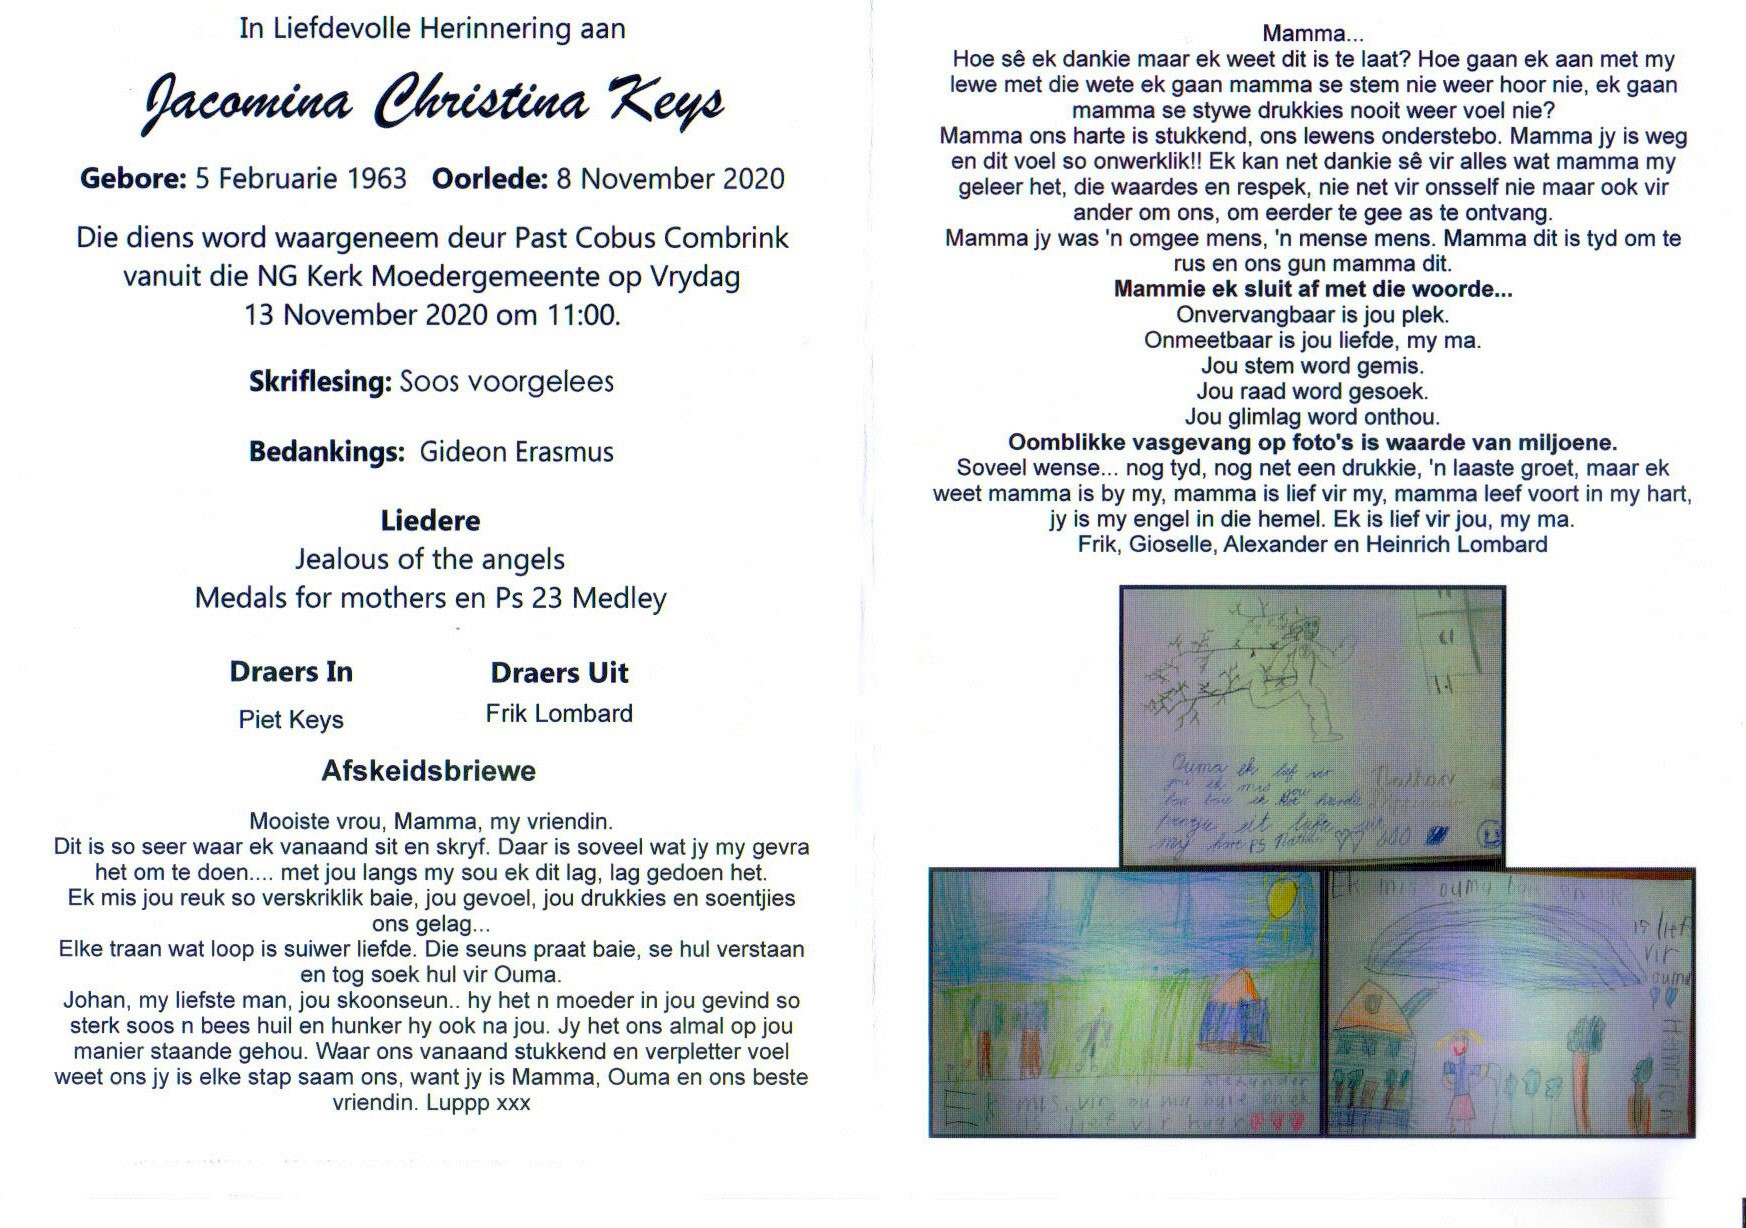 In Liefdevolle Herinnering aan
Jacomina Christina Keys
Gebore: 5 Februarie 1963 Oorlede: 8 November 2020
Die diens word waargeneem deur Past Cobus Combrink
vanuit die NG Kerk Moedergemeente op Vrydag
13 November 2020 om 11:00.
Skriflesing: Soos voorgelees
Bedankings: Gideon Erasmus
Liedere
Jealous of the angels
Medals for mothers en Ps 23 Medley
Draers In
Piet Keys
Draers Uit
Frik Lombard
Afskeidsbriewe
Mooiste vrou, Mamma, my vriendin.
Dit is so seer waar ek vanaand sit en skryf. Daar is soveel wat jy my gevra
het om te doen.... met jou langs my sou ek dit lag, lag gedoen het.
Ek mis jou reuk so verskriklik baie, jou gevoel, jou drukkies en soentjies
ons gelag...
Elke traan wat loop is suiwer liefde. Die seuns praat baie, se hul verstaan
en tog soek hul vir Ouma.
Johan, my liefste man, jou skoonseun.. hy het n moeder in jou gevind so
sterk soos n bees huil en hunker hy ook na jou. Jy het ons almal op jou
manier staande gehou. Waar ons vanaand stukkend en verpletter voel
weet ons jy is elke stap saam ons, want jy is Mamma, Ouma en ons beste
vriendin. Luppp xxx
Mamma...
Hoe sê ek dankie maar ek weet dit is te laat? Hoe gaan ek aan met my
lewe met die wete ek gaan mamma se stem nie weer hoor nie, ek gaan
mamma se stywe drukkies nooit weer voel nie?
Mamma ons harte is stukkend, ons lewens onderstebo. Mamma jy is weg
en dit voel so onwerklik!! Ek kan net dankie sê vir alles wat mamma my
geleer het, die waardes en respek, nie net vir onsself nie maar ook vir
ander om ons, om eerder te gee as te ontvang.
Mamma jy was 'n omgee mens, 'n mense mens. Mamma dit is tyd om te
rus en ons gun mamma dit.
Mammie ek sluit af met die woorde...
Onvervangbaar is jou plek.
Onmeetbaar is jou liefde, my ma.
Jou stem word gemis.
Jou raad word gesoek.
Jou glimlag word onthou.
Oomblikke vasgevang op foto's is waarde van miljoene.
Soveel wense... nog tyd, nog net een drukkie, 'n laaste groet, maar ek
weet mamma is by my, mamma is lief vir my, mamma leef voort in my hart,
jy is my engel in die hemel. Ek is lief vir jou, my ma.
Frik, Gioselle, Alexander en Heinrich Lombard
Ouma ek lief vir
jou ek mis jou
baie ek
my PS Nathan
Alexander
Ek mis vir ouma baie en ek
is lief vir haar
Ek mis ouma baie en ek
is lief
vir
ouma
Heinrich